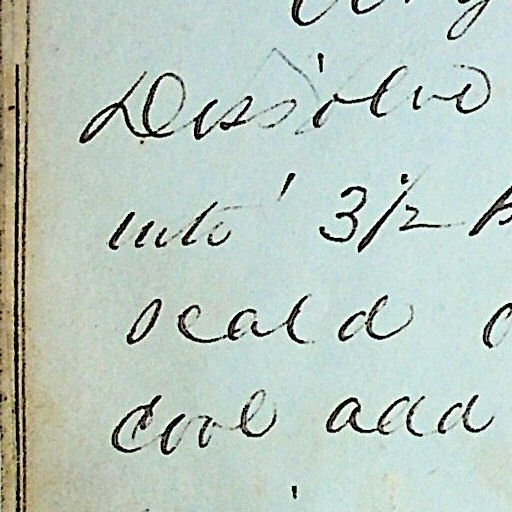 Dissolve
into 3 1/2
scald
cool add